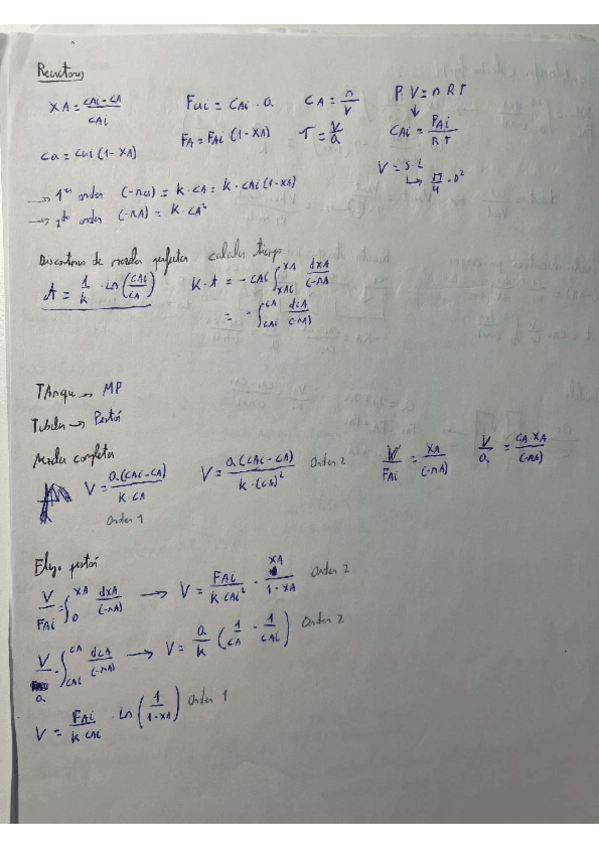 Reactores
XA = CAi - CA / CAi    FAi = CAi · Q    CA = n/V    P·V = n R T
Ca = CAi (1-XA)    FA = FAi (1-XA)    τ = V/Q    CAi = PAi / R·T
V = S·L
→ π/4 · D²
→ 1er orden (-ra) = k·CA = k·CAi (1-XA)
→ 2do orden (-rA) = k·CA²
Discontinuo de mezcla perfecta calcular tiempo
t = 1/k · Ln (CAi/CA)    k·t = -CAi ∫ XAi XA dXA/(-rA)
= -∫ CAi CA dCA/(-rA)
TAnque → MP
Tubular → Pistón
Mezcla completa
V = Q(CAi-CA) / k·CA    V = Q(CAi-CA) / k·(CA)²    Orden 2    V/FAi = XA/(-rA)    V/Q = CA·XA/(-rA)
Orden 1
Flujo pistón
V/FAi = ∫ 0 XA dXA/(-rA) → V = FAi / k CAi² · XA / 1-XA    Orden 2
V/Q - ∫ CAi CA dCA/(-rA) → V = Q/k (1/CA - 1/CAi)    Orden 2
V = FAi / k CAi · Ln (1 / 1-XA)    Orden 1